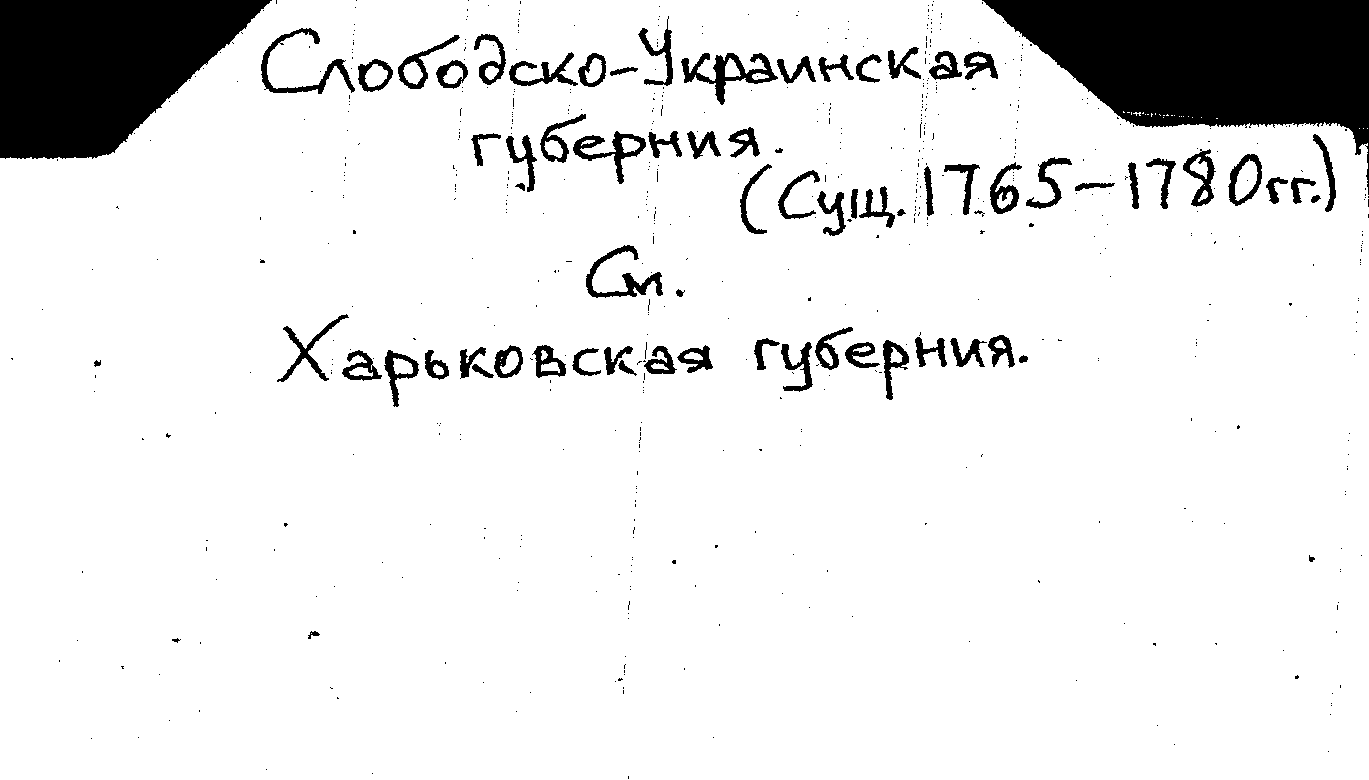 Слободско-Украинская
губерния.
(Сущ. 1765-1780гг.)
См.
Харьковская губерния.